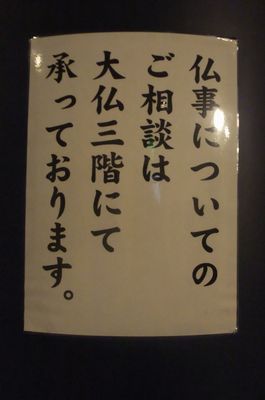 仏事についての
ご相談は
大仏三階にて
承っております。